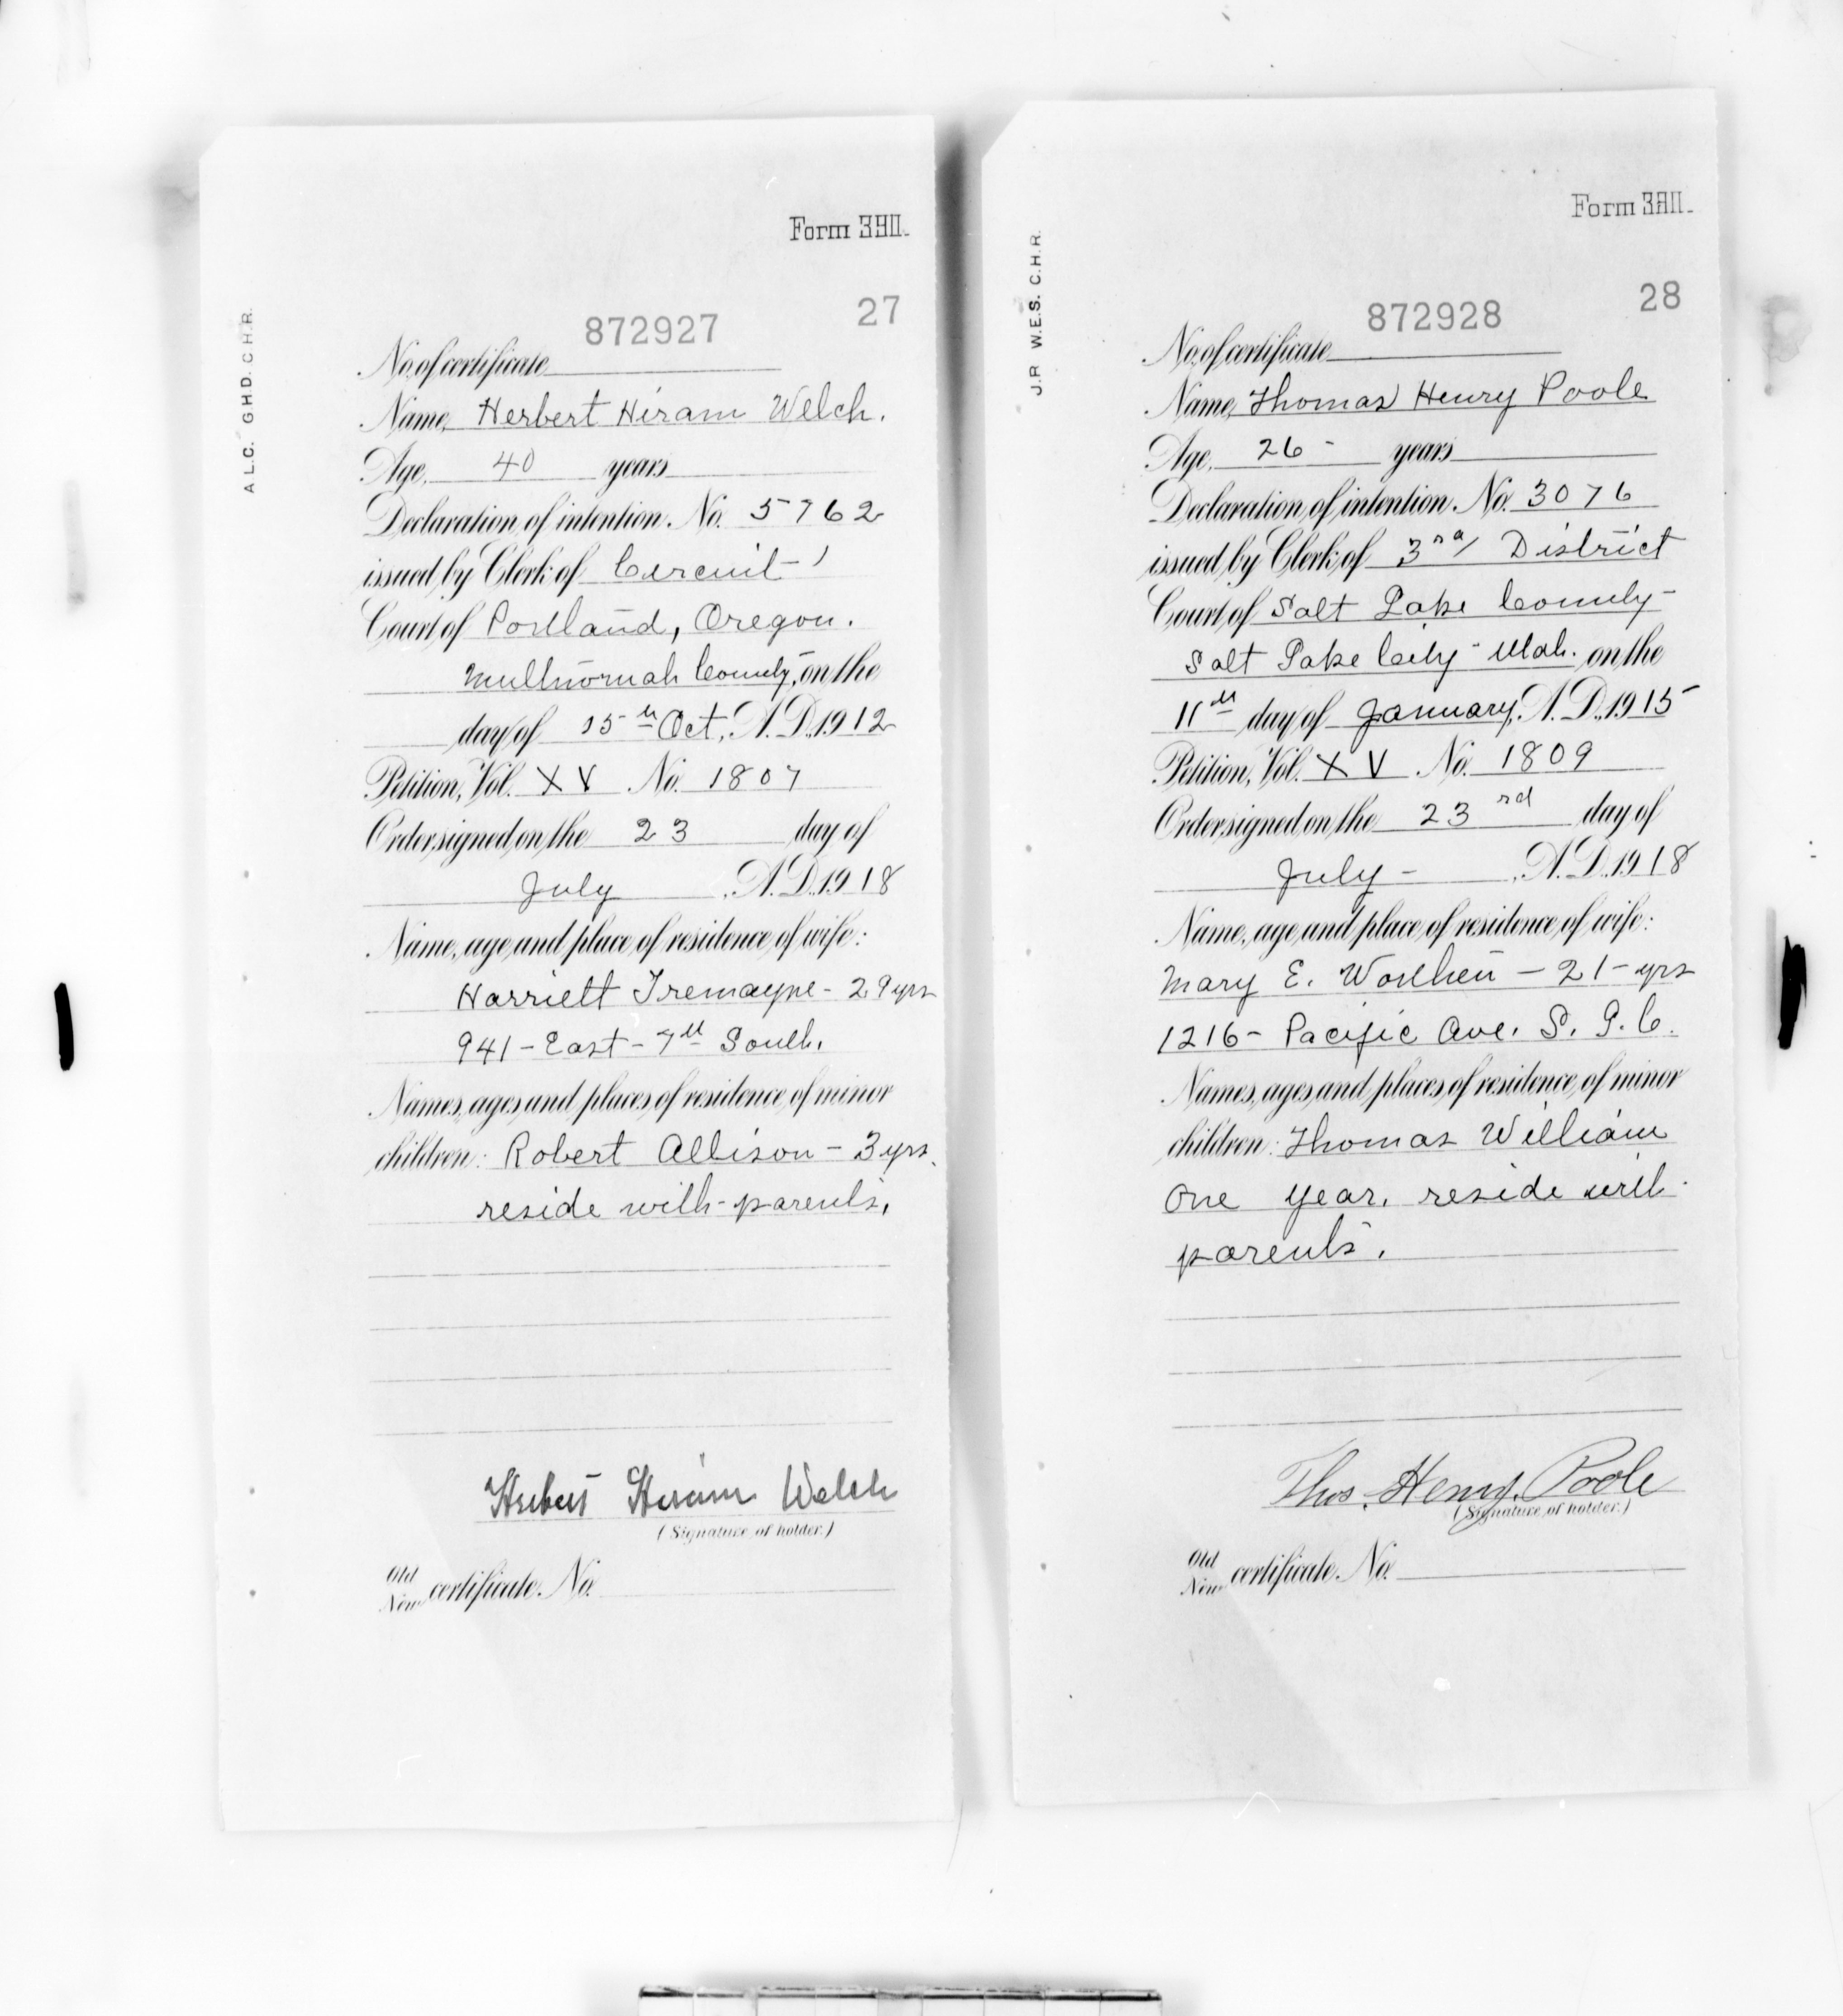 Form 3911.
A L.C. G H D. C H.R.
872927 27
No. of certificate
Name, Herbert Hiram Welch.
Age, 40 years
Declaration of intention, No. 5762
issued by Clerk of Circuit
Court of Portland, Oregon.
Multnomah County, on the
day of 15th Oct, A. D. 1912
Petition, Vol. XV No. 1807
Order signed on the 23 day of
July , A. D. 1918
Name, age and place of residence of wife:
Harriett Tremayne - 29 yrs
941 - East - 7th South.
Names, ages and places of residence of minor
children: Robert Allison - 3 yrs.
reside with parents.
Herbert Hiram Welch
(Signature of holder.)
Old
New certificate No.
J.R W.E.S. C.H.R.
872928 28
No. of certificate
Name, Thomas Henry Poole
Age, 26 - years
Declaration of intention, No. 3076
issued by Clerk of 3rd District
Court of Salt Lake County -
Salt Lake City - Utah. on the
11th day of January, A. D. 1915
Petition, Vol. XV No. 1809
Order signed on the 23rd day of
July - , A. D. 1918
Name, age and place of residence of wife:
Mary E. Worthen - 21 - yrs
1216 - Pacific Ave. S. L. C.
Names, ages and places of residence of minor
children: Thomas William
One year. reside with
parents.
Thos. Henry Poole
(Signature of holder.)
Old
New certificate No.